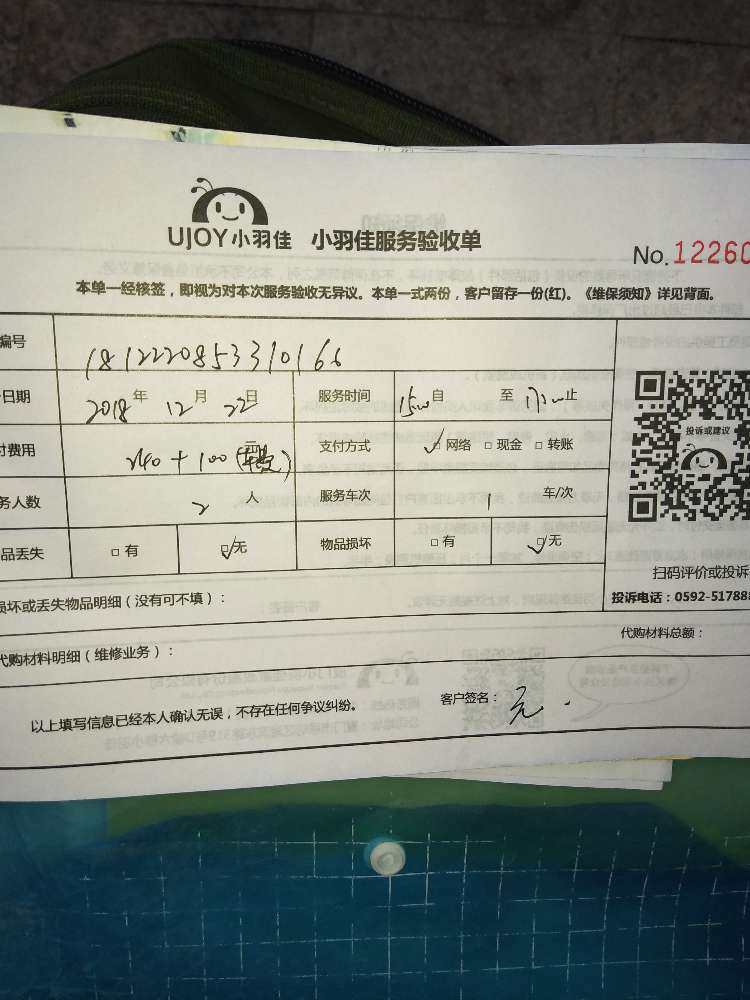 UJOY小羽佳 小羽佳服务验收单
No.12260
本单一经核签，即视为对本次服务验收无异议。本单一式两份，客户留存一份(红)。《维保须知》详见背面。
编号 1812220853310166
日期 2018 年 12 月 22 日 服务时间 自 15:00 至 止
付费用 240 + 100 (车费) 元 支付方式 ☑网络 □现金 □转账
务人数 2 人 服务车次 1 车/次
品丢失 □有 ☑无 物品损坏 □有 ☑无
投诉或建议
扫码评价或投诉
投诉电话：0592-517888
损坏或丢失物品明细（没有可不填）：
代购材料明细（维修业务）：
代购材料总额：
以上填写信息已经本人确认无误，不存在任何争议纠纷。 客户签名：